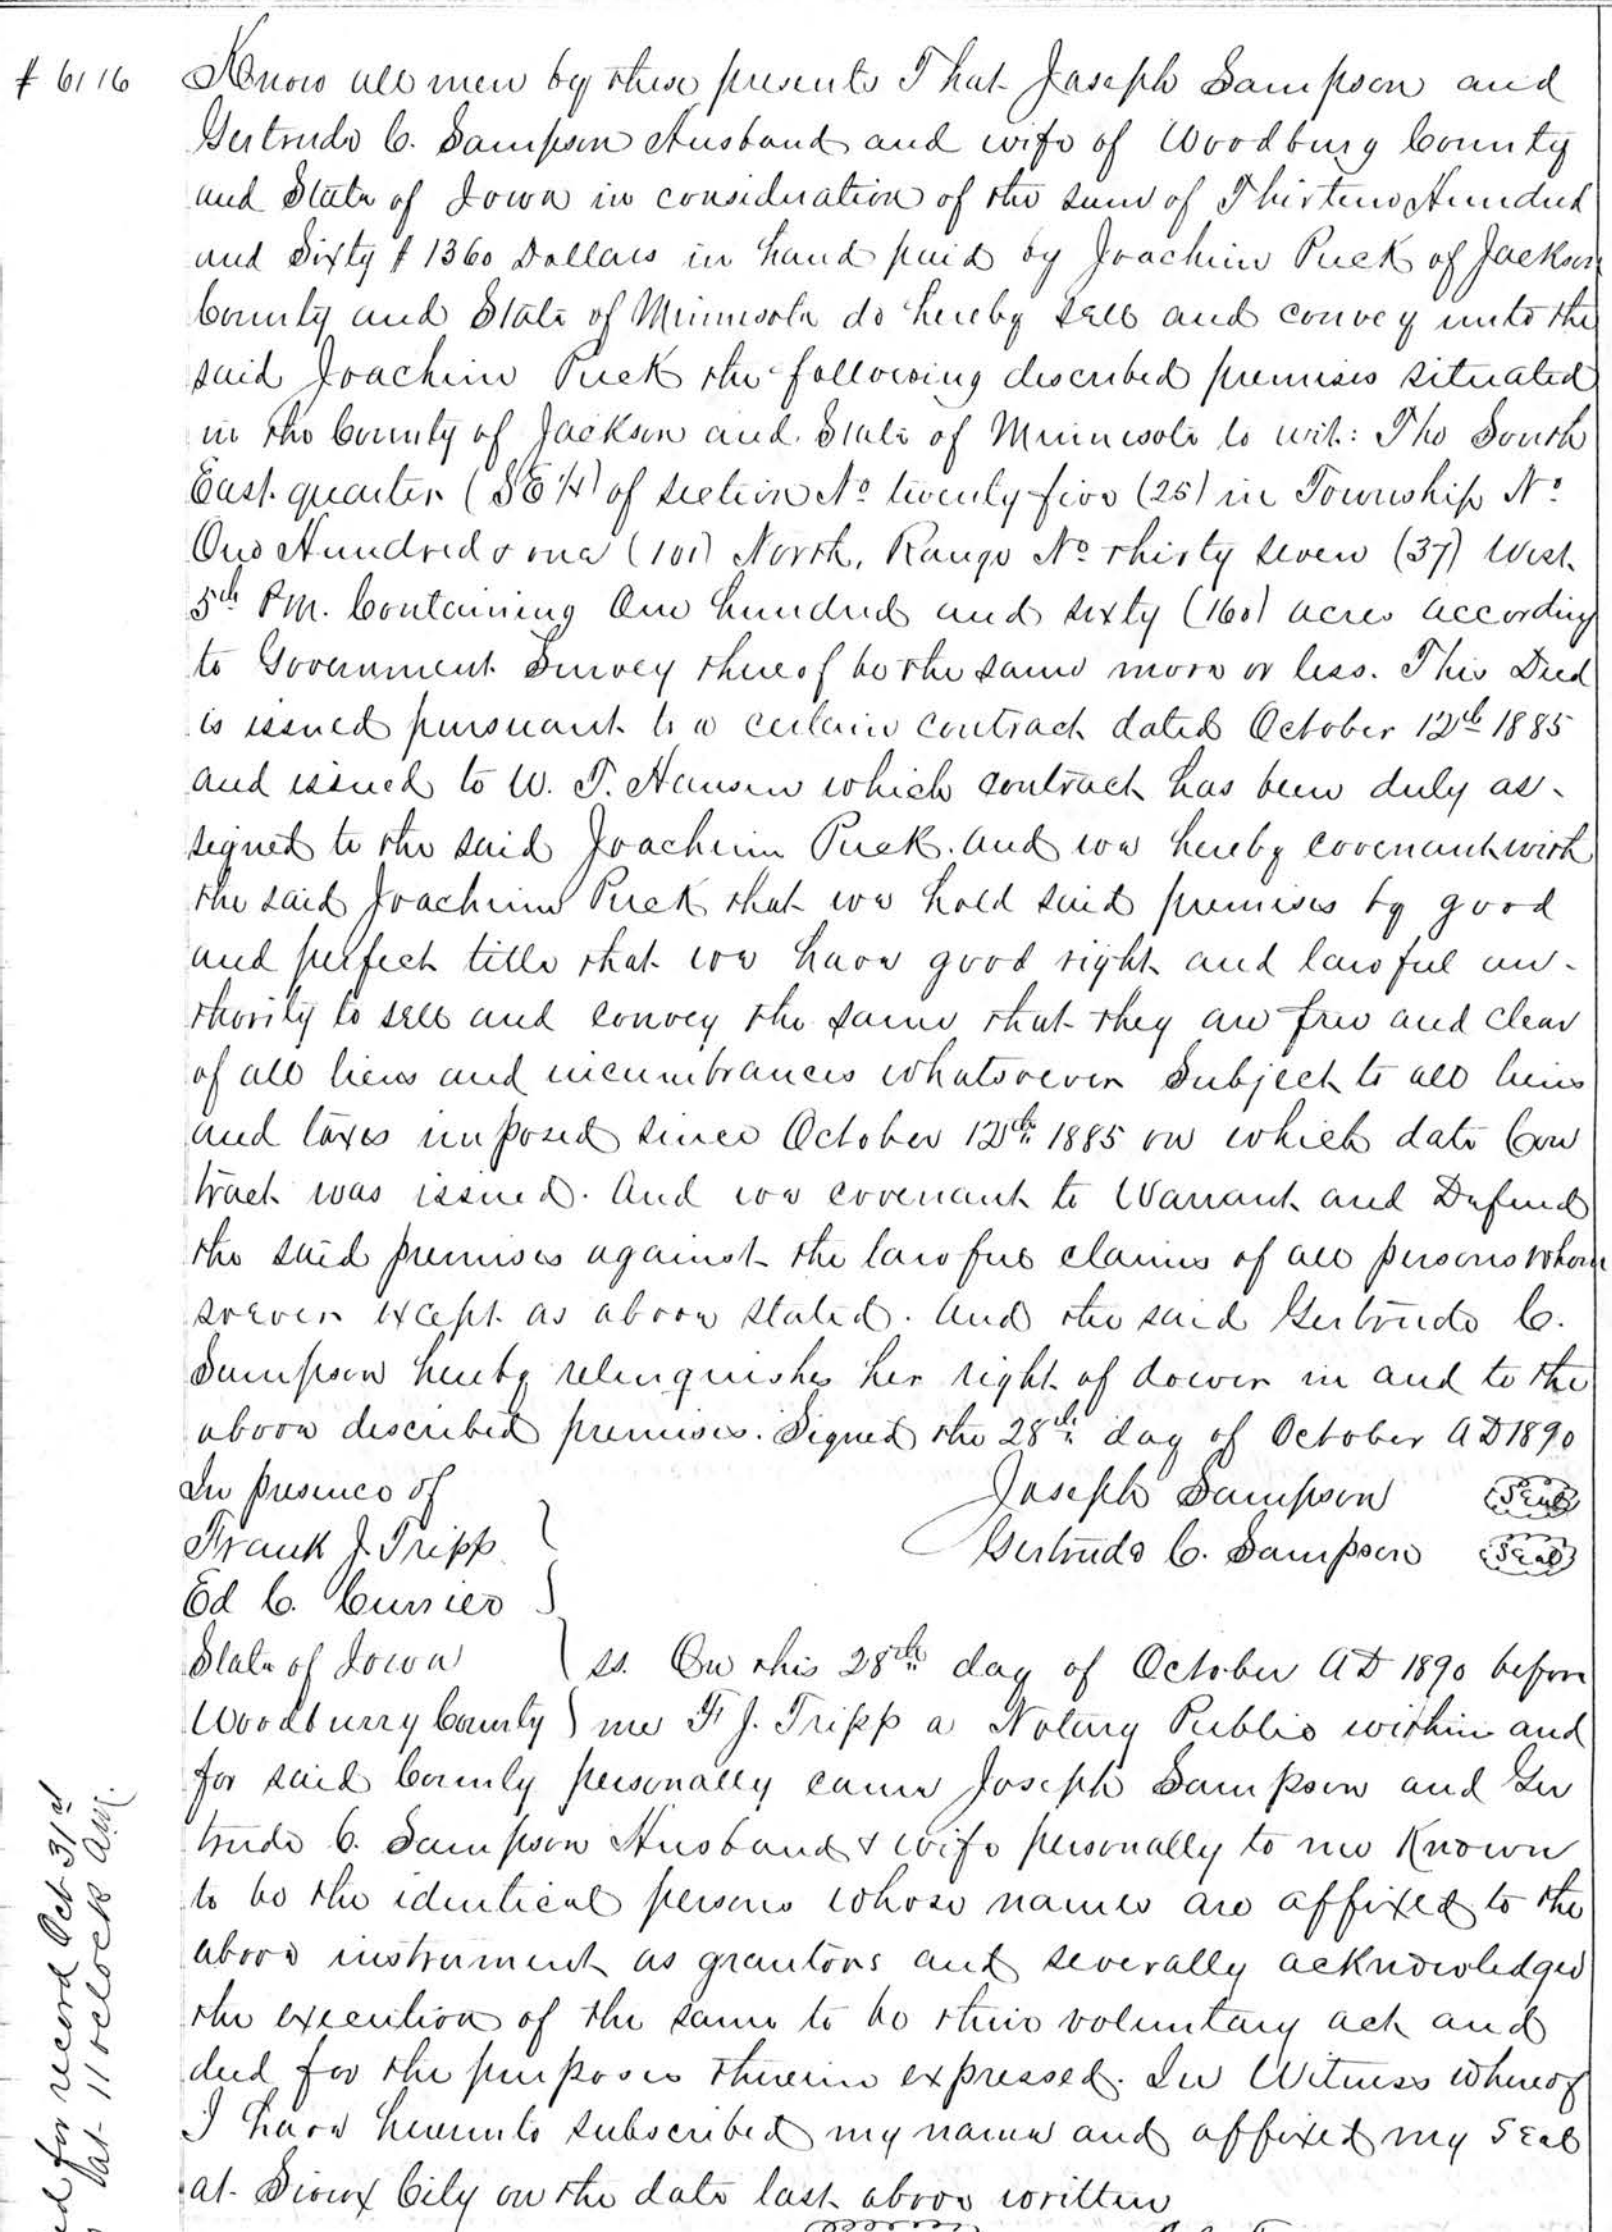 # 6116
Know all men by these presents That Joseph Sampson and
Gertrude C. Sampson Husband and wife of Woodbury County
and State of Iowa in consideration of the sum of Thirteen Hundred
and Sixty $ 1360 Dollars in hand paid by Joachim Puck of Jackson
County and State of Minnesota do hereby sell and convey unto the
said Joachim Puck the following described premises situated
in the County of Jackson and State of Minnesota to wit: The South
East quarter (SE 1/4) of section No twenty five (25) in Township No
One Hundred & one (101) North, Range No thirty seven (37) West
5th P.M. Containing One hundred and sixty (160) acres according
to Government Survey thereof be the same more or less. This Deed
is issued pursuant to a certain contract dated October 12th 1885
and issued to W. T. Hansen which contract has been duly as-
signed to the said Joachim Puck. And we hereby covenant with
the said Joachim Puck that we hold said premises by good
and perfect title that we have good right and lawful au-
thority to sell and convey the same that they are free and clear
of all liens and incumbrances whatsoever Subject to all liens
and taxes imposed since October 12th 1885 on which date Con
tract was issued. And we covenant to Warrant and Defend
the said premises against the lawful claims of all persons whom
soever except as above stated. And the said Gertrude C.
Sampson hereby relinquishes her right of dower in and to the
above described premises. Signed the 28th day of October AD 1890
In presence of
Joseph Sampson Seal
Frank J. Tripp
Gertrude C. Sampson Seal
Ed C. Currier
State of Iowa ss. On this 28th day of October AD 1890 before
Woodburry County me F. J. Tripp a Notary Public within and
for said County personally came Joseph Sampson and Ger
trude C. Sampson Husband & wife personally to me Known
to be the identical persons whose names are affixed to the
above instrument as grantors and severally acknowledged
the execution of the same to be their voluntary act and
deed for the purposes therein expressed. In Witness whereof
I have hereunto subscribed my name and affixed my Seal
at Sioux City on the date last above written
for record Oct 31st
at 11 oclock AM.